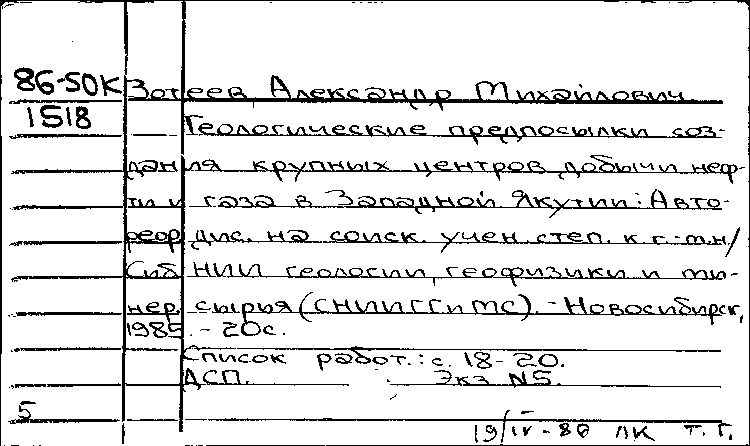 86-50К Зотеев, Александр Михайлович
1518
Геологические предпосылки соз-
дания крупных центров добычи неф-
ти и газа в Западной Якутии: Авто-
реф дис. на соиск. учен. степ. к.г.-м.н/
Сиб НИИ геологии, геофизики и ми-
нер. сырья (СНИИГГиМС). - Новосибирск,
1985. - 20с.
Список работ.: с. 18-20.
ДСП. Экз N5.
5
19/IV-86 ЛК Т. Г.